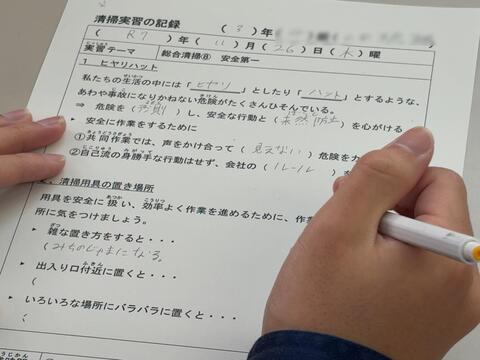 清掃実習の記録 ( 3 ) 年
( R7 ) 年 ( 11 ) 月 ( 26 ) 日 ( 水 ) 曜
実習テーマ 総合清掃⑧ 安全第一
1 ヒヤリハット
私たちの生活の中には「ヒヤリ」としたり「ハット」とするような、
あわや事故になりかねない危険がたくさんひそんでいる。
⇒ 危険を (予測) し、安全な行動と (未然防止) を心がける
▸ 安全に作業をするために
①共同作業では、声をかけ合って (見えない) 危険を
②自己流の身勝手な行動はせず、会社の (ルール) を
清掃用具の置き場所
用具を安全に扱い、効率よく作業を進めるために、作
所に気をつけましょう。
▸ 雑な置き方をすると・・・
(みちのじゃまになる。
▸ 出入り口付近に置くと・・・
(
▸ いろいろな場所にバラバラに置くと・・・
(